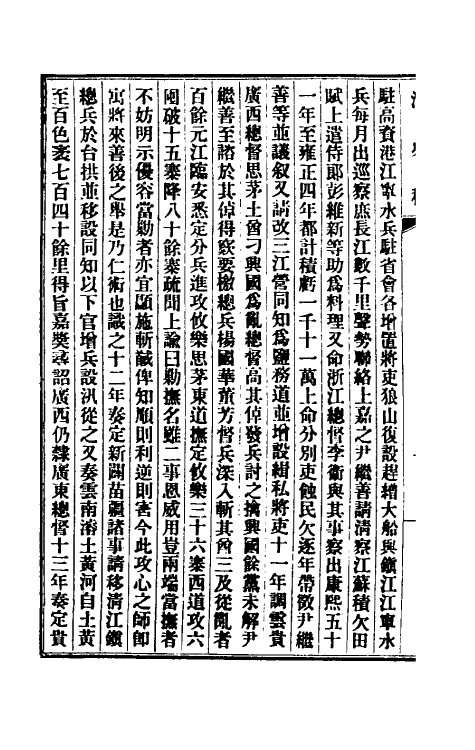 駐高資港江寧水兵駐省會各增置將吏狼山復設趕繒大船與鎮江江寧水
兵每月出巡察庶長江數千里聲勢聯絡上嘉之尹繼善請清察江蘇積欠田
賦上遣侍郎彭維新等助爲料理又命浙江總督李衞與其事察出康熙五十
一年至雍正四年都計積虧一千十一萬上命分別吏蝕民欠逐年帶徵尹繼
善等並議敘又請改三江營同知爲鹽務道並增設緝私將吏十一年調雲貴
廣西總督思茅土酋刁興國爲亂總督高其倬發兵討之擒興國餘黨未解尹
繼善至諮於其倬得窾要檄總兵楊國華董芳督兵深入斬其酋三及從亂者
百餘元江臨安悉定分兵進攻攸樂思茅東道撫定攸樂三十六寨西道攻六
囤破十五寨降八十餘寨疏聞上諭曰勦撫名雖二事恩威用豈兩端當撫者
不妨明示優容當勦者亦宜顯施斬馘俾知順則利逆則害今此攻心之師卽
寓將來善後之舉是乃仁術也識之十二年奏定新闢苗疆諸事請移清江鎮
總兵於台拱並移設同知以下官增兵設汛從之又奏雲南濬土黃河自土黃
至百色袤七百四十餘里得旨嘉奬尋詔廣西仍隸廣東總督十三年奏定貴